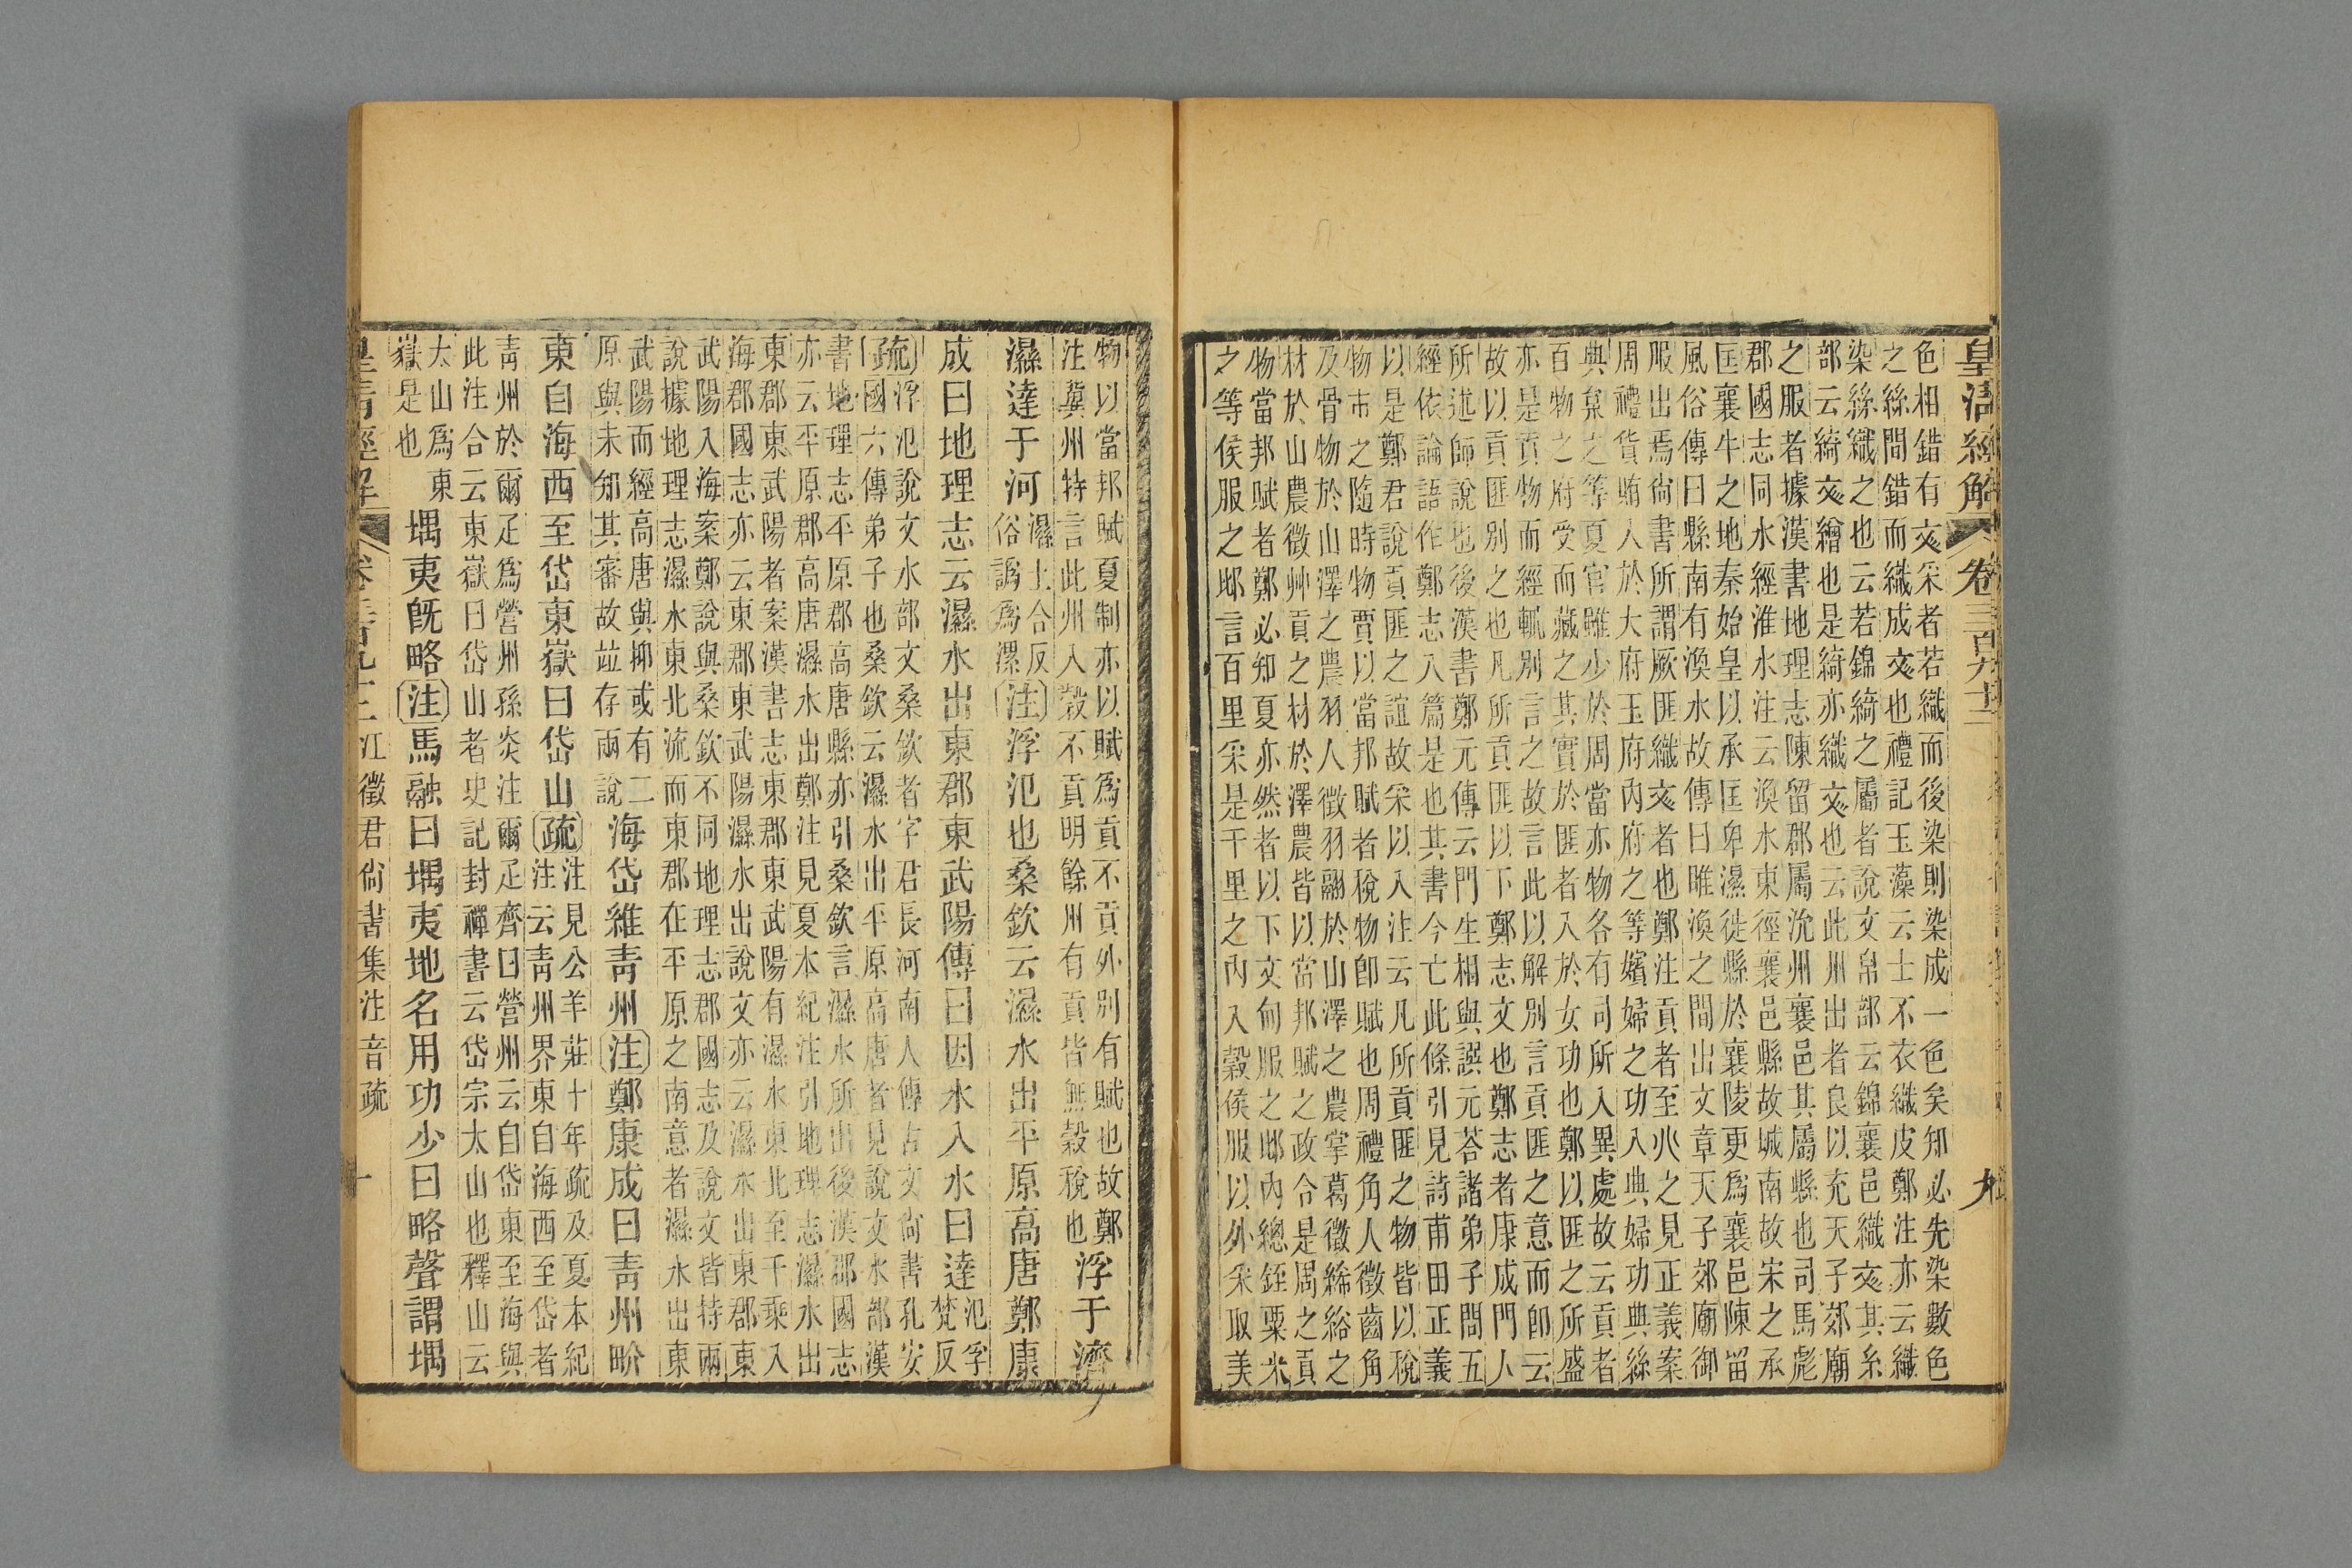 皇清經解 卷三百九十二 九
色相錯有文采者若織而後染則染成一色矣知必先染數色
之絲間錯而織成文也禮記玉藻云士不衣織皮鄭注亦云織
染絲織之也云若錦綺之屬者說文帛部云錦襄邑織文其糸
部云綺文繒也是綺亦織文也云此州出者良以充天子郊廟
之服者據漢書地理志陳留郡屬沇州襄邑其屬縣也司馬彪
郡國志同水經淮水注云渙水東徑襄邑縣故城南故宋之承
匡襄牛之地秦始皇以承匡卑濕徙縣於襄陵更爲襄邑陳留
風俗傳曰縣南有渙水故傳曰睢渙之間出文章天子郊廟御
服出焉尙書所謂厥匪織文者也鄭注貢者至火之見正義案
周禮貨賄人於大府玉府內府之等嬪婦之功入典婦功典絲
典枲之等夏官雖少於周當亦物各有司所入異處故云貢者
百物之府受而藏之其實於匪者入於女功也鄭以匪之所盛
亦是貢物而經輒別言之故言此以解別言貢匪之意而卽云
故以貢匪別之也凡所貢匪以下鄭志文也鄭志者康成門人
所述師說也後漢書鄭元傳云門生相與譔元荅諸弟子問五
經依論語作鄭志八篇是也其書今亡此條引見詩甫田正義
以是鄭君說貢匪之誼故采以入注云凡所貢匪之物皆以稅
物市之隨時物賈以當邦賦者稅物卽賦也周禮角人徵齒角
及骨物於山澤之農羽人徵羽翮於山澤之農掌葛徵絺綌之
材於山農徵艸貢之材於澤農皆以當邦賦之政合是周之貢
物當邦賦者鄭必知夏亦然者以下文甸服之邸內總銍粟米
之等侯服之邸言百里采是千里之內入穀侯服以外采取美
物以當邦賦夏制亦以賦爲貢不貢外別有賦也故鄭
注冀州特言此州入穀不貢明餘州有貢皆無穀稅也
浮于濟
濕達于河
濕土合反
俗譌爲漯
注浮氾也桑欽云濕水出平原高唐鄭康
成曰地理志云濕水出東郡東武陽傳曰因水入水曰達
氾孚
梵反
疏浮氾說文水部文桑欽者字君長河南人傳古文尙書孔安
國六傳弟子也桑欽云濕水出平原高唐者見說文水部漢
書地理志平原郡高唐縣亦引桑欽言濕水所出後漢郡國志
亦云平原郡高唐濕水出鄭注見夏本紀注引地理志濕水出
東郡東武陽者案漢書志東郡東武陽有濕水東北至千乘入
海郡國志亦云東郡東武陽濕水出說文亦云濕水出東郡東
武陽入海案鄭說與桑欽不同地理志郡國志及說文皆特兩
說據地理志濕水東北流而東郡在平原之南意者濕水出東
武陽而經高唐與抑或有二
原與未知其審故竝存兩說
海岱維靑州注鄭康成曰靑州畍
東自海西至岱東嶽曰岱山
疏注見公羊莊十年疏及夏本紀
注云靑州界東自海西至岱者
靑州於爾疋爲營州孫炎注爾疋齊曰營州云自岱東至海與
此注合云東嶽曰岱山者史記封禪書云岱宗太山也釋山云
太山爲東
嶽是也
堣夷旣略注馬融曰堣夷地名用功少曰略聲謂堣
皇清經解 卷三百九十二江徵君尙書集注音疏 十